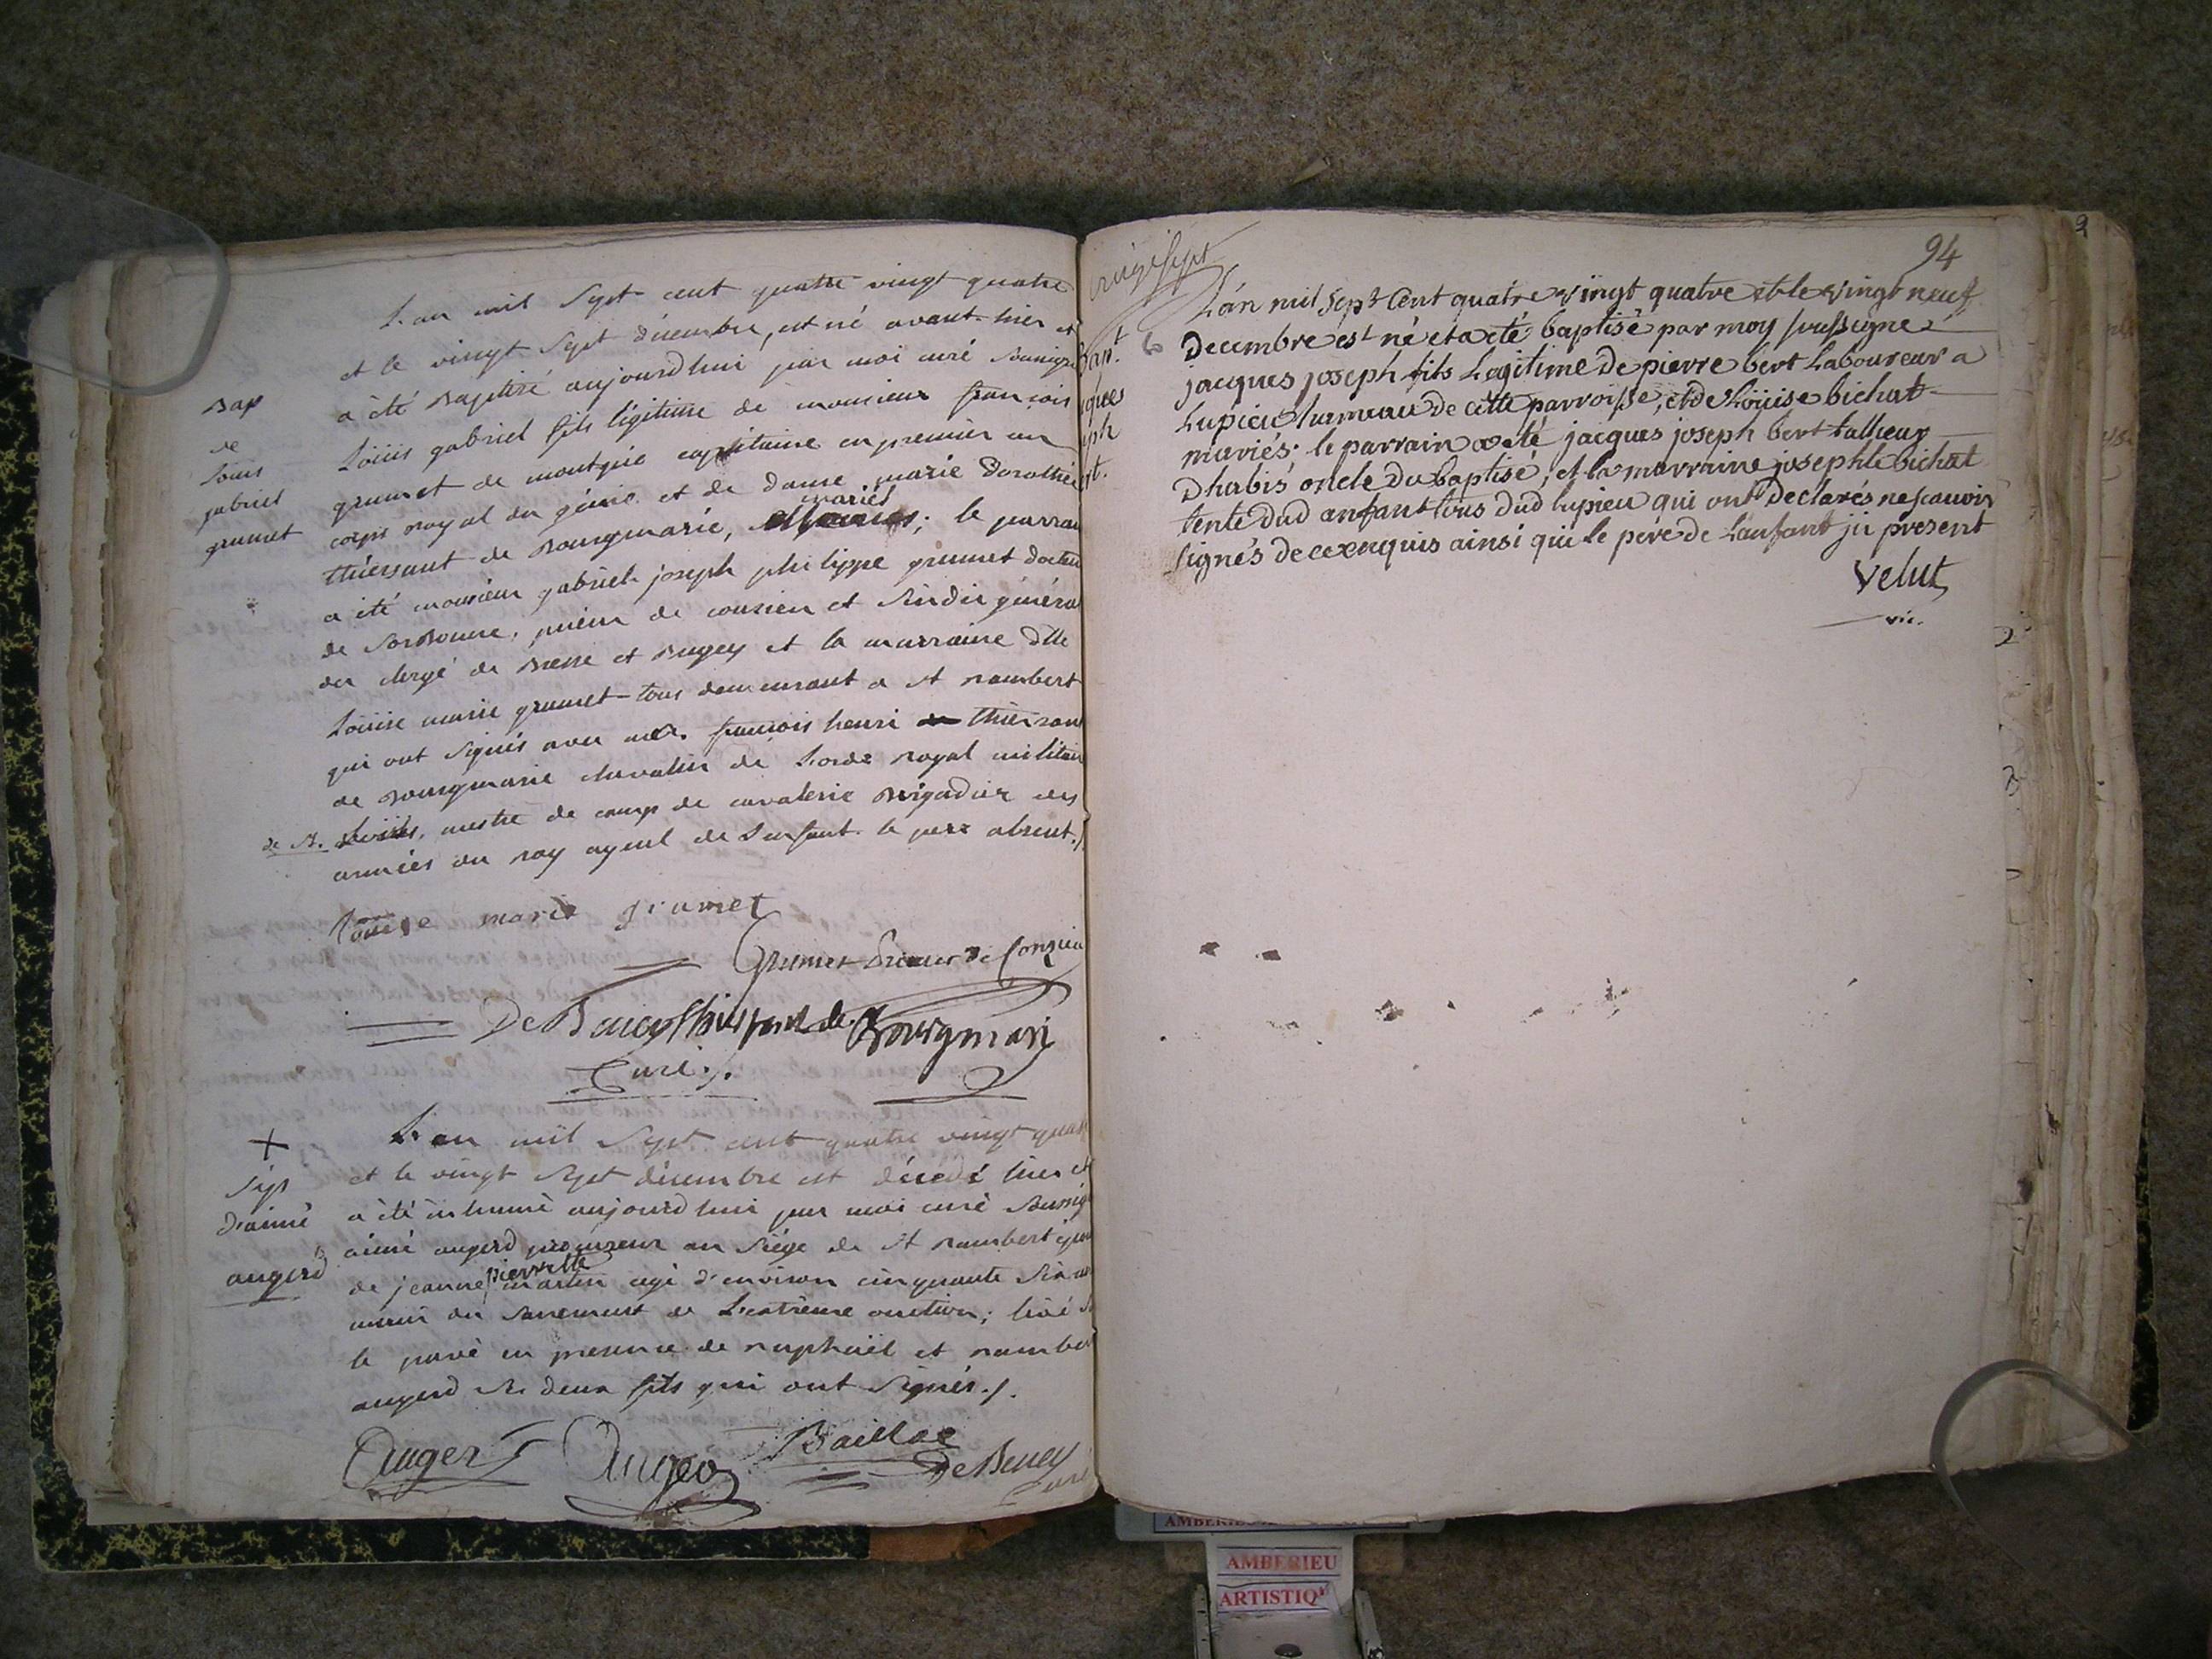 L'an mil Sept cent quattre vingt quatre
et le vingt Sept décembre, est né avant-hier et
a été Baptisé aujourdhui par moi curé soussigné
Bap
de
Louis
gabriel
grumet
Loüis gabriel fils légitime de monsieur françois
grumet de montpie capitaine en premier au
corps royal du génie et de dame marie Dorothée
thiersant de Bourgmarie, mariés; le parrain
a été monsieur gabriel joseph philippe grumet docteur
de Sorbonne, prieur de conzieu et Sindic général
du clergé de Bresse et Bugey et la marraine dlle
Loüise marie grumet tous demeurant a st rambert
qui ont signés avec françois henri thiersant
de Bourgmarie chevalier de L'ordre royal militaire
de St. Loüis, mestre de camp de cavalerie Brigadier des
armées du roy ayeul de L'enfant. le pere absent./.
Louise marie grumet
Grumet Prieur de Conzieu
De Bourgmari
Curé./.
L'an mil Sept cent quatre vingt quatre
et le vingt Sept décembre est décédé hier et
a été inhumé aujourdhui par moi curé Soussigné
+
Sep
d'aimé
augerd
aimé augerd procureur au Siége de St rambert époux
de jeanne pierrette martin agé d'environ cinquante Six ans
muni du Sacrement de L'extrême onction;
le pavé en presence de raphaël et rambert
augerd Ses deux fils qui ont Signés./.
Auger Auger
Baillod
De Bucy
curé
94
Bapt.
L'an mil Sept Cent quatre vingt quatre et le vingt neuf
Decembre est né et a eté baptisé par moy soussigné
jacques joseph fils Legitime De pierre bert Laboureur a
Lupieu hameau de cette parroisse, et de Loüise bichat
mariés. le parrain a eté jacques joseph bert tallieur
Dhabis oncle du baptisé, et la marraine josephte bichat
tente dud anfant tous dud lupieu qui ont declarés ne scavoir
signés de ce enquis ainsi que le père de Lanfant ji present
Velut
vic.